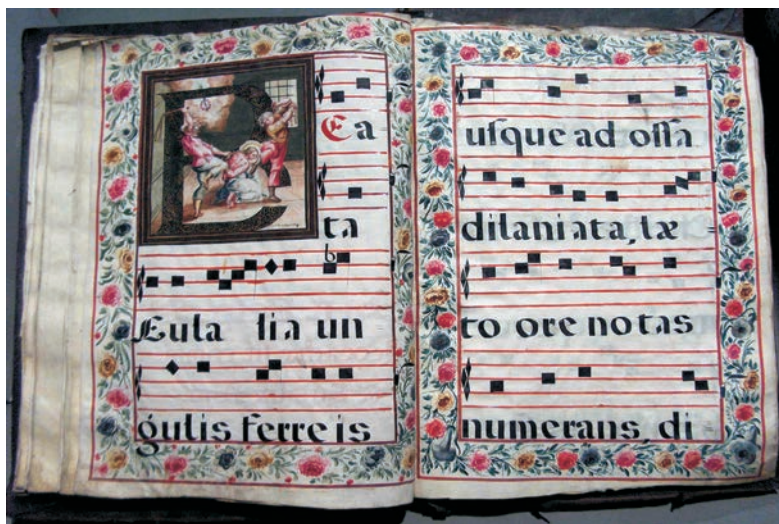 Ea
ta
Eula lia un
gulis ferre is
uſque ad oſſa
dilaniata, læ
to ore notas
numerans, di